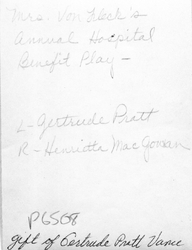 Mrs. Von Fleck's
Annual Hospital
Benefit Play -
L - Gertrude Pratt
R - Henrietta MacGonan
P6508
gift of Gertrude Pratt Vance